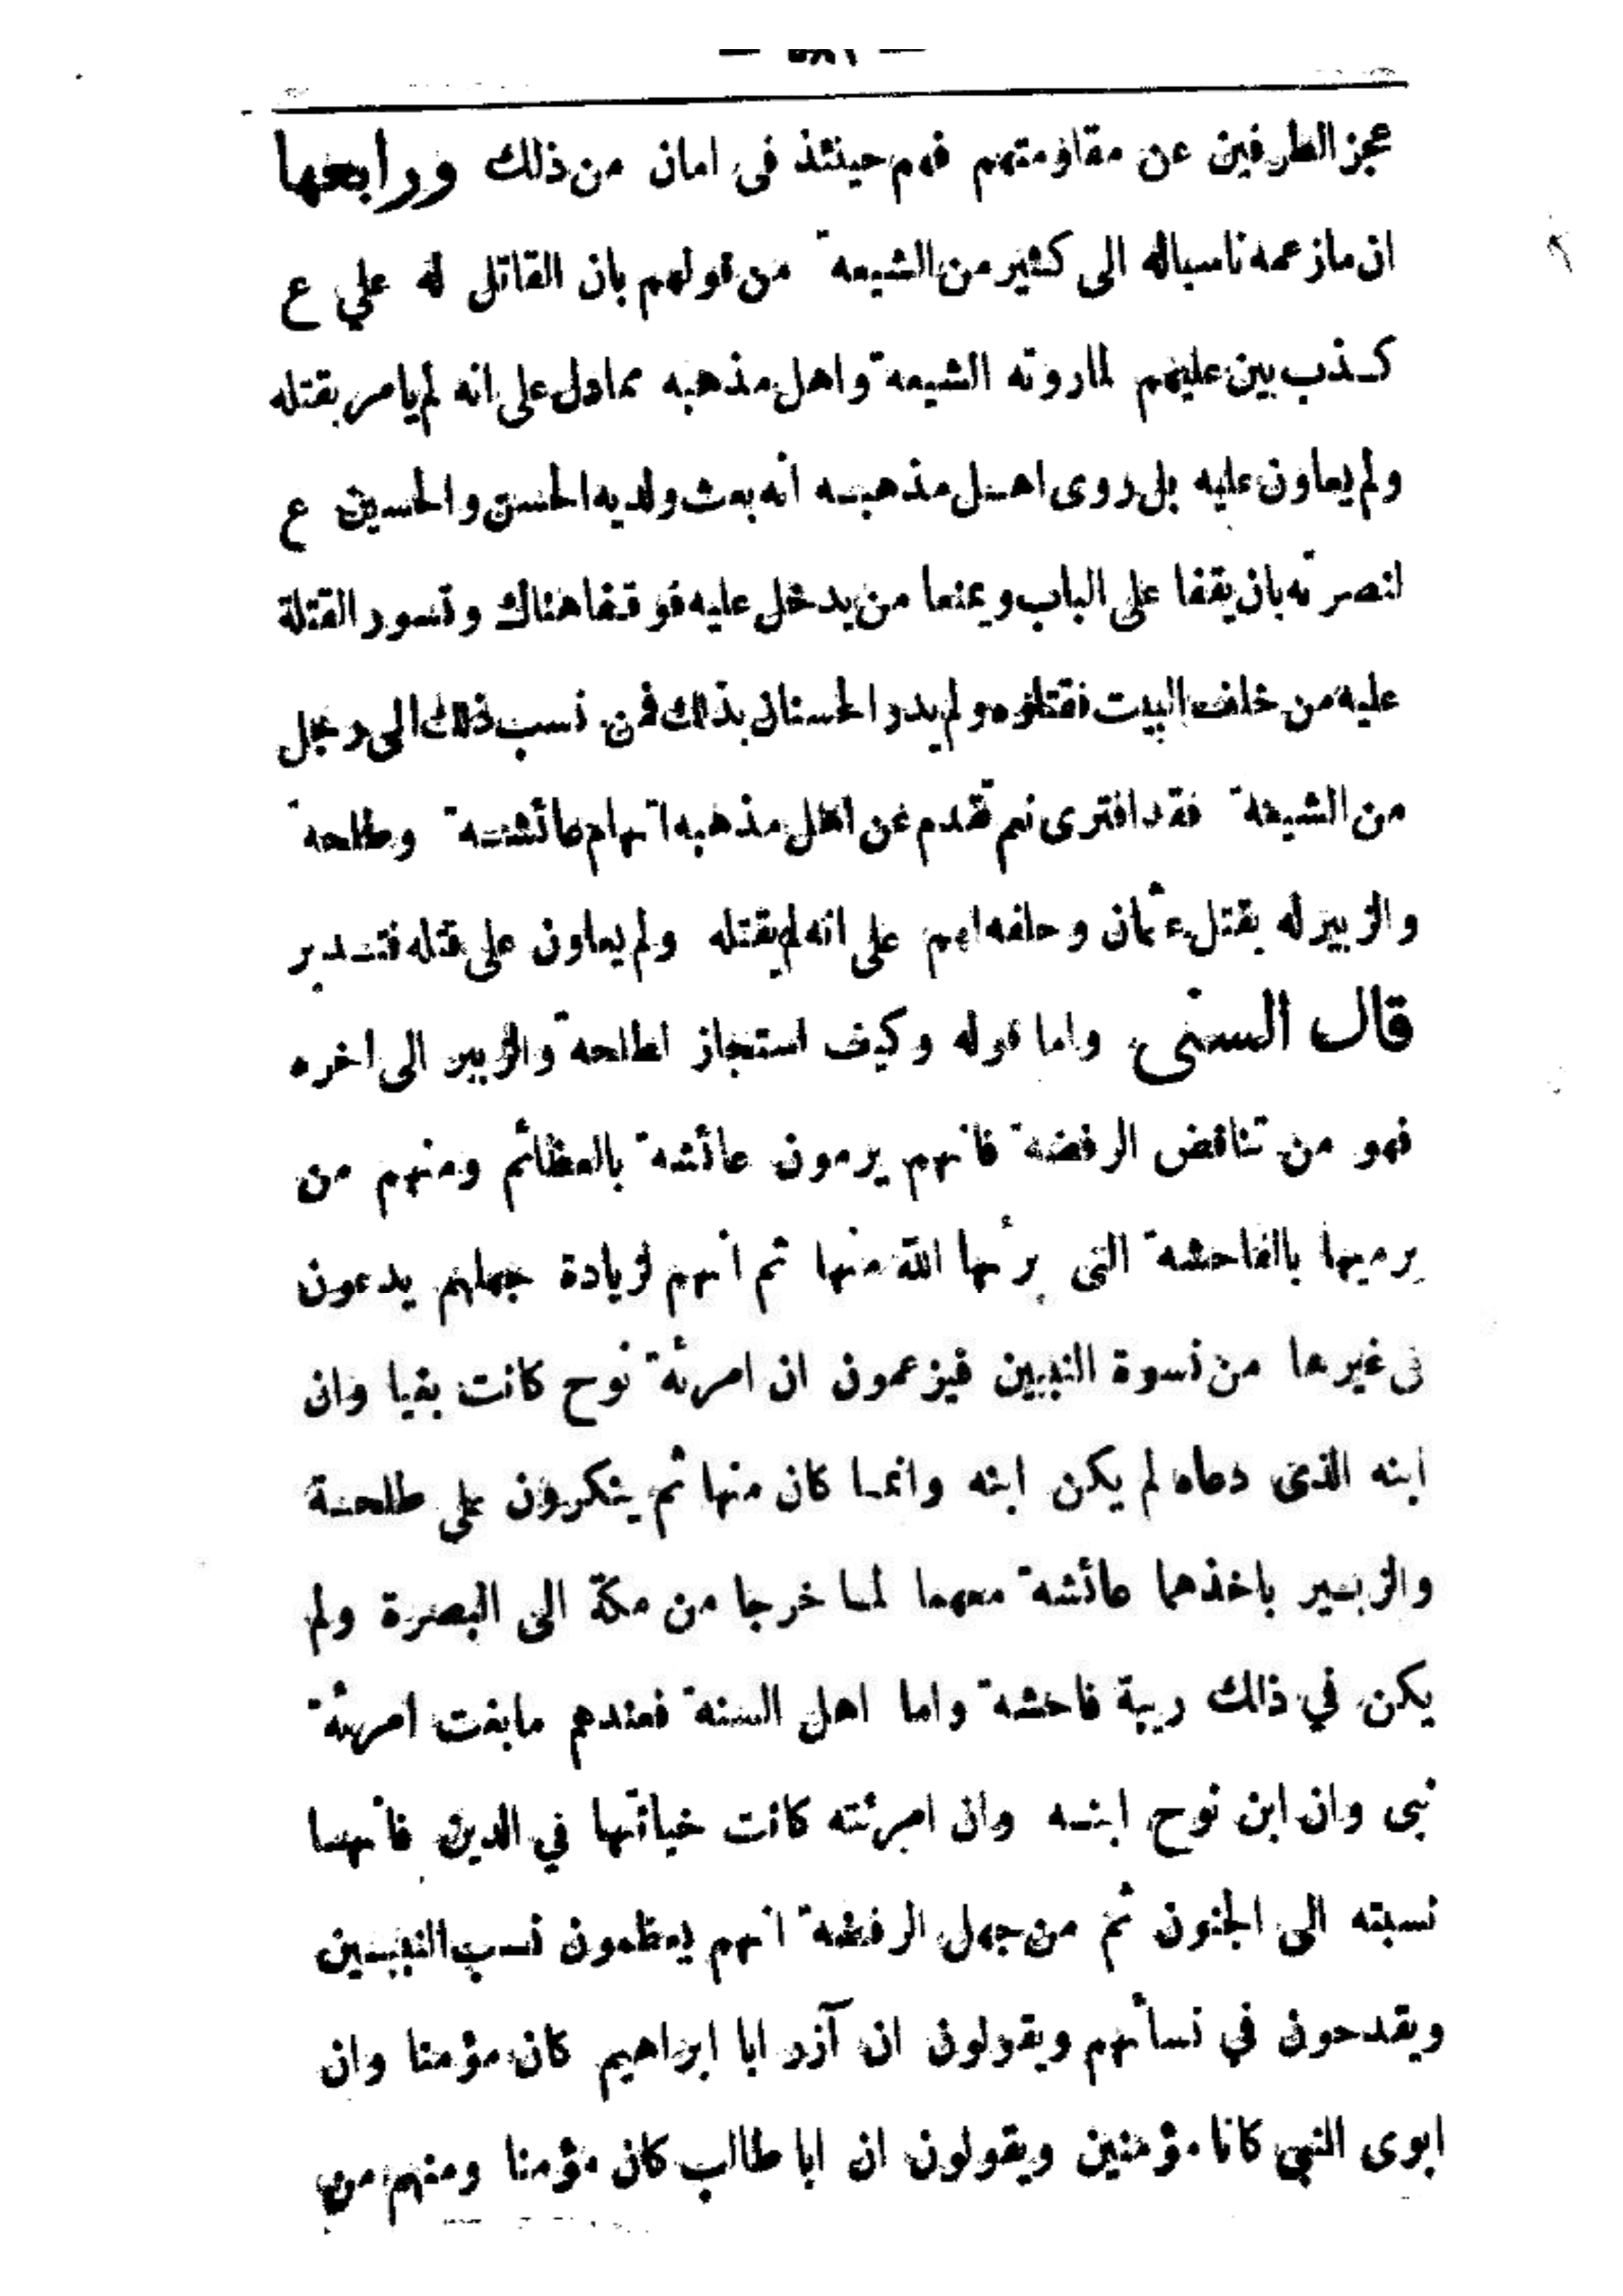 — ٥٨٦ —
عجز الطرفين عن مقاومتهم فهم حينئذ فى امان من ذلك ورابعها
ان ما زعمه ناسباله الى كثير من الشيعة من قولهم بان القاتل له علي ع
كذب بين عليهم لما روته الشيعة واهل مذهبه مما دل على انه لم يامر بقتله
ولم يعاون عليه بل روى اهل مذهبه انه بعث ولديه الحسن والحسين ع
لنصرته بان يقفا على الباب ويمنعا من يدخل عليه فوقفا هناك وتسور القتلة
عليه من خلف البيت فقتلوه ولم يدر الحسنان بذلك فمن نسب ذلك الى رجل
من الشيعة فقد افترى نعم تقدم عن اهل مذهبه اتهام عائشة وطلحة
والزبير له بقتل عثمان وحلفه لهم على انه لم يقتله ولم يعاون على قتله فتدبر
قال السنى واما قوله وكيف استجاز لطلحة والزبير الى اخره
فهو من تناقض الرفضة فانهم يرمون عائشة بالعظائم ومنهم من
يرميها بالفاحشة التى برئها الله منها ثم انهم لزيادة جهلهم يدعون
فى غيرها من نسوة النبيين فيزعمون ان امرئة نوح كانت بغيا وان
ابنه الذى دعاه لم يكن ابنه وانما كان منها ثم ينكرون على طلحة
والزبير باخذهما عائشة معهما لما خرجا من مكة الى البصرة ولم
يكن في ذلك ريبة فاحشة واما اهل السنة فعندهم ما بغت امرئة
نبى وان ابن نوح ابنه وان امرئته كانت خيانتها في الدين فانها
نسبته الى الجنون ثم من جهل الرفضة انهم يعظمون نسب النبيين
ويقدحون في نسائهم ويقولون ان آزر ابا ابراهيم كان مؤمنا وان
ابوى النبي كانا مؤمنين ويقولون ان ابا طالب كان مؤمنا ومنهم من